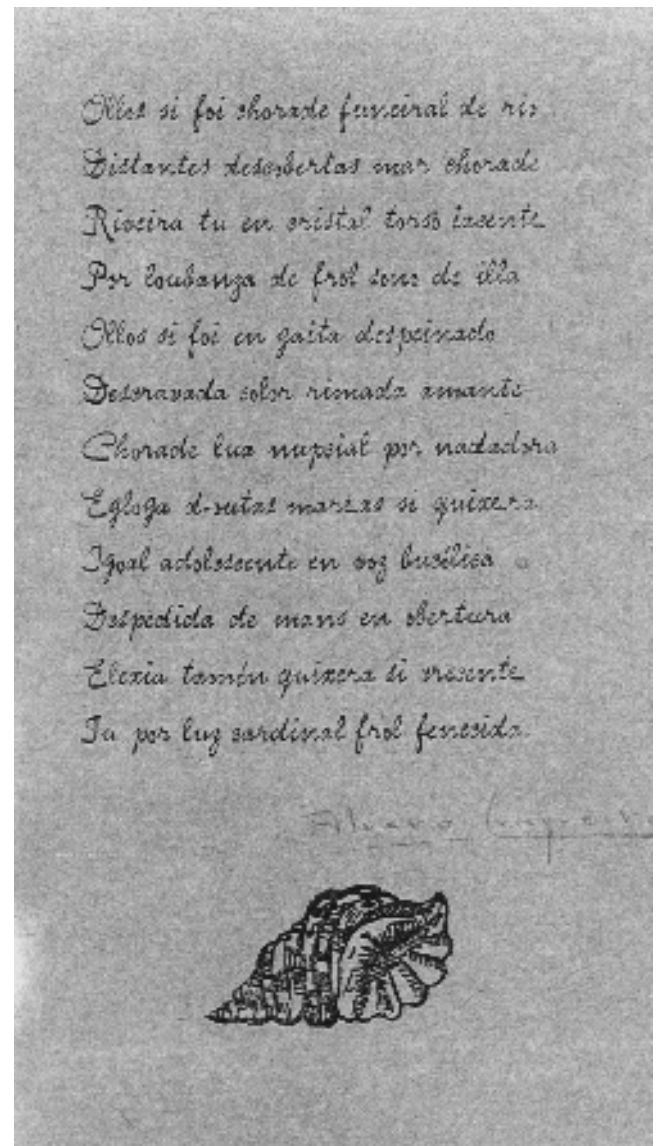 Ollos si foi chorade funeiral de rio
Distantes descobertas mar chorade
Riveira tu en cristal torso ixcente
Por loubanza de frol sono de illa
Ollos si foi en gaita despeinado
Descravada color rimada amante
Chorade lua nupcial por nadadora
Egloga d-outas mareas si quixera
Igoal adolescente en voz bucólica
Despedida de mans en obertura
Elexia tamén quixera si crecente
Tu por luz cardinal frol fenecida
Alvaro